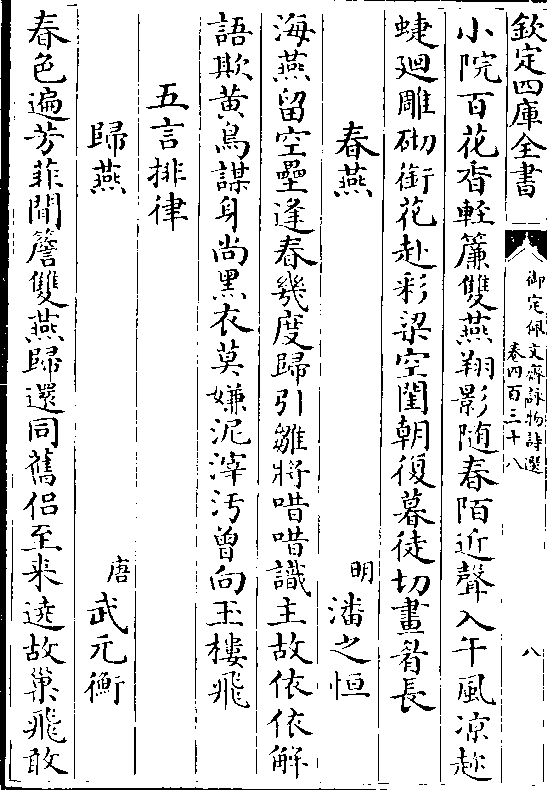 欽定四庫全書
御定佩文齋詠物詩選
卷四百三十八
八
小院百花香輕簾雙燕翔影随春陌近聲入午風凉趂
蜨廻雕砌銜花赴彩梁空閨朝復暮徒切畫眉長
春燕
明
潘之恒
海燕留空壘逢春幾度歸引雛將唶唶識主故依依解
語欺黄鳥謀身尚黒衣莫嫌泥滓汚曾向玉樓飛
五言排律
歸燕
唐
武元衡
春色遍芳菲閒簷雙燕歸還同舊侣至来遶故巢飛敢